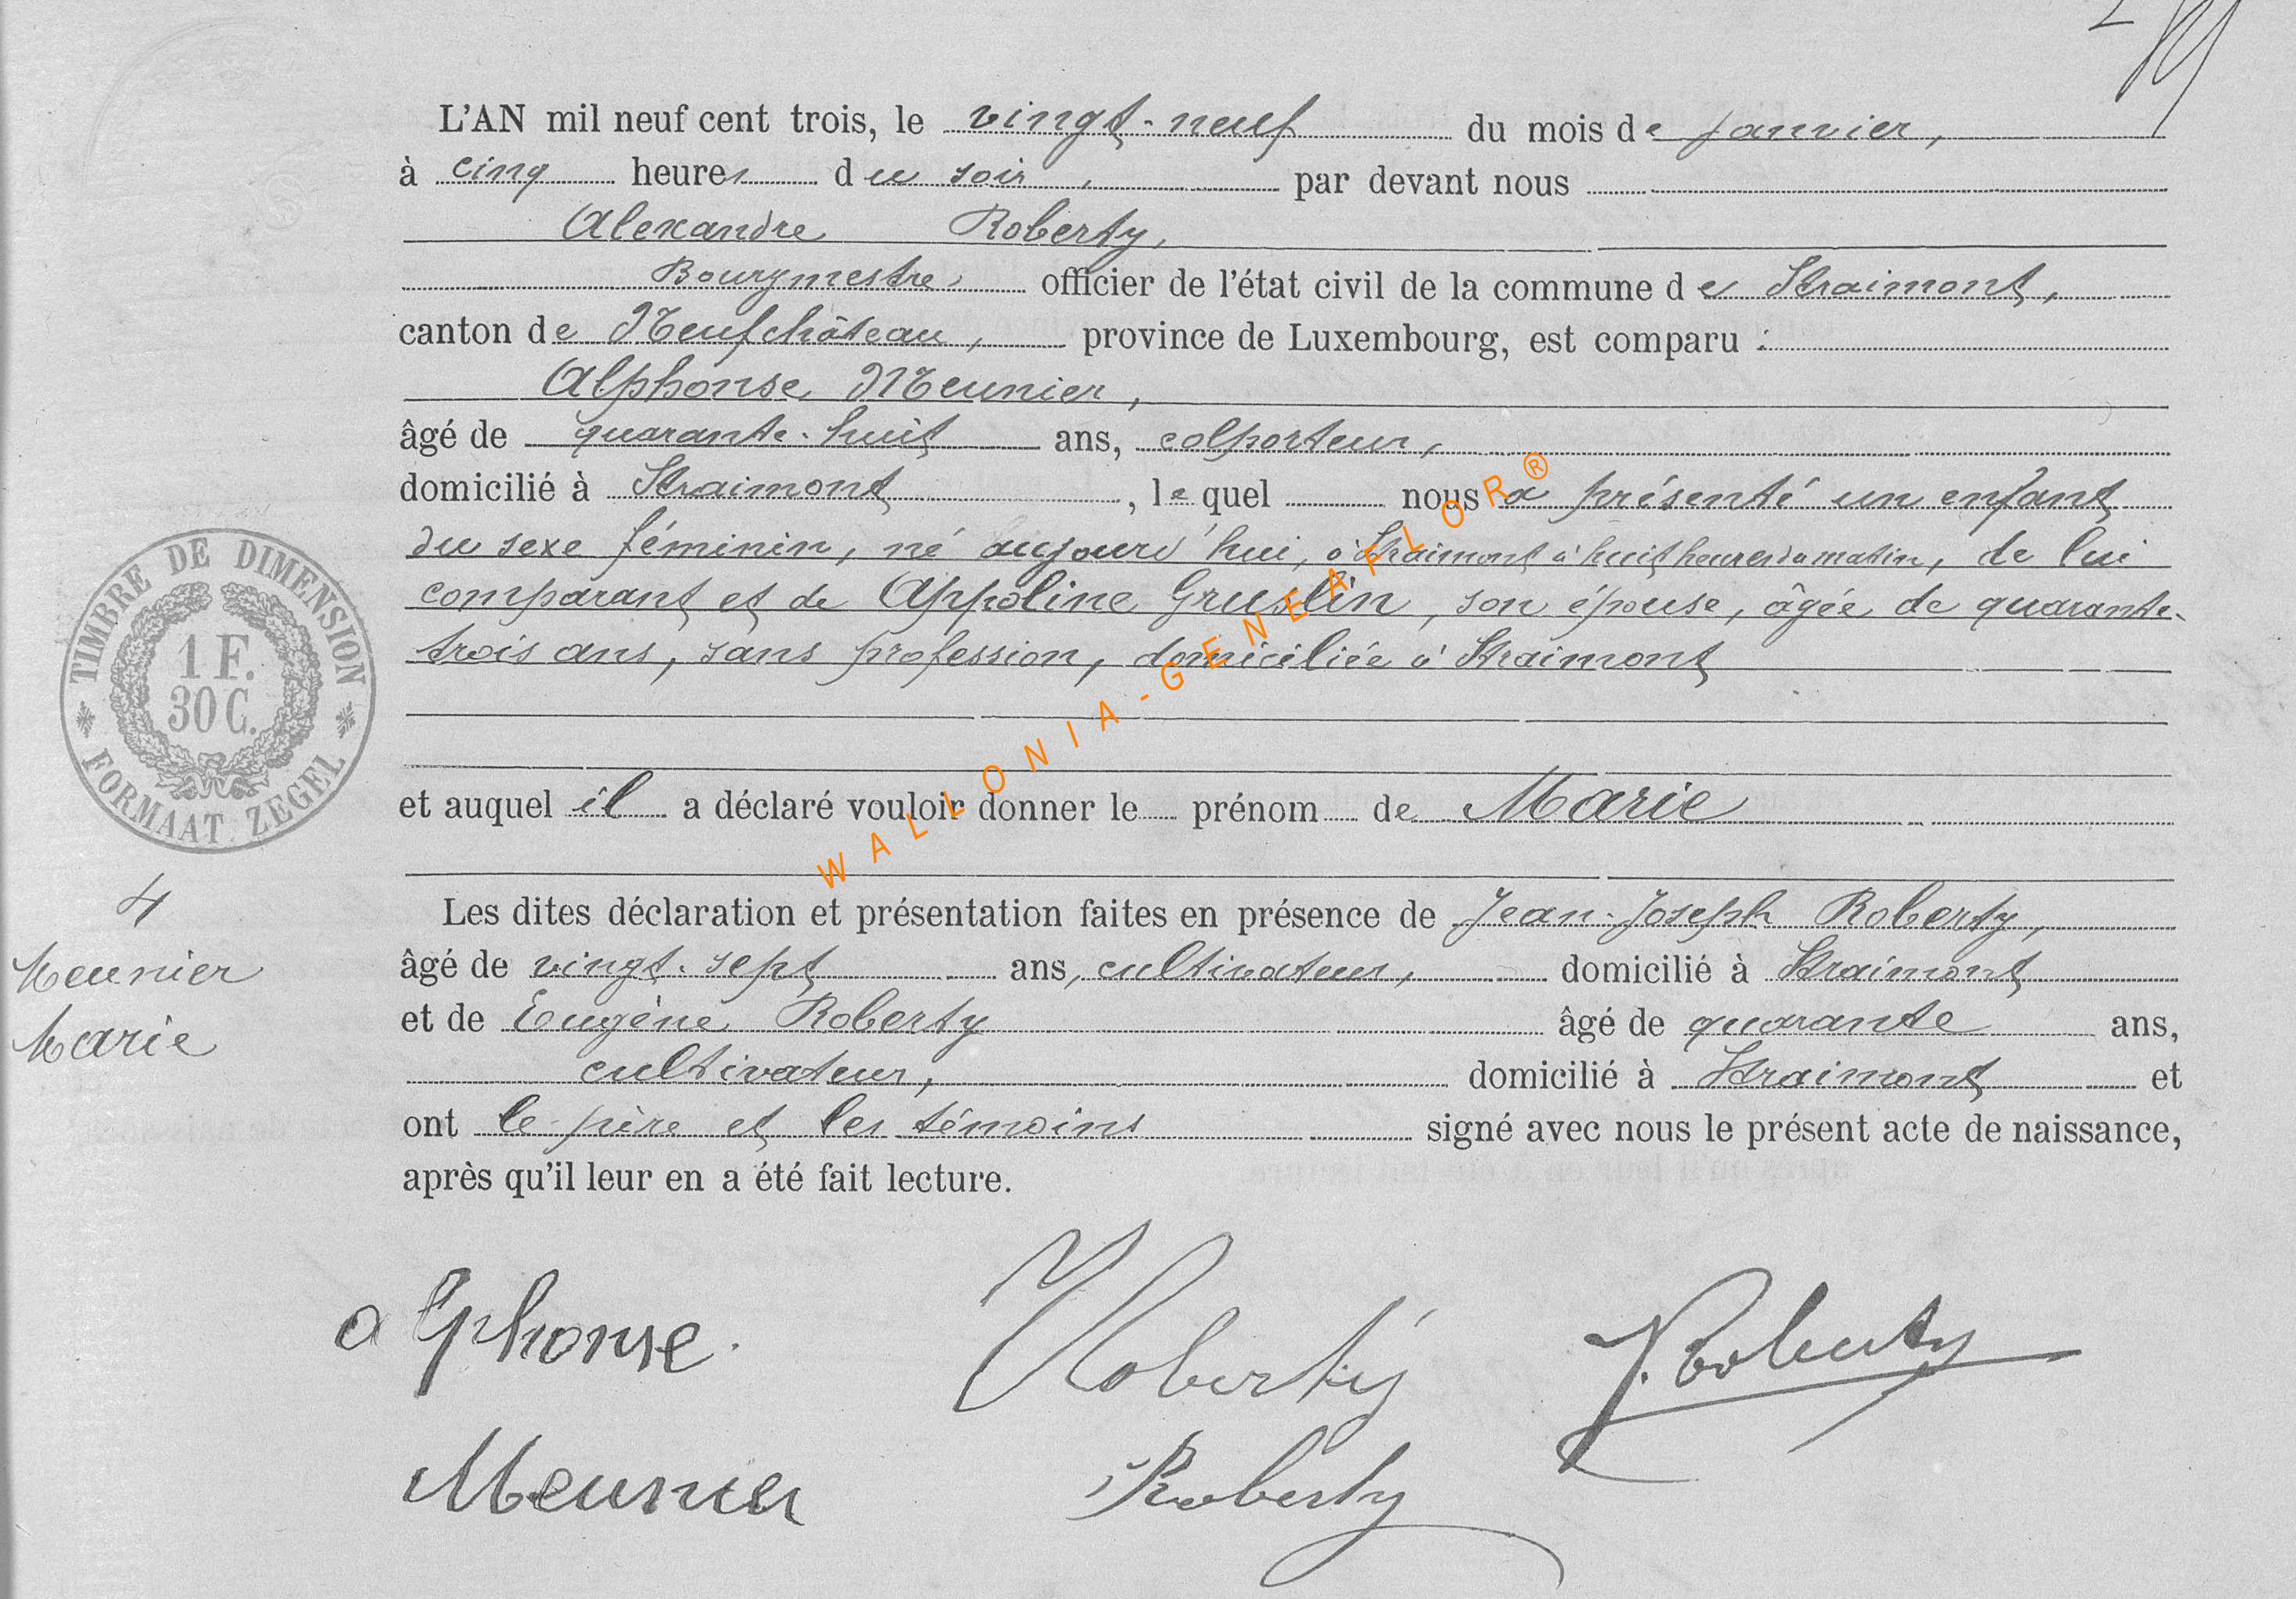 L'AN mil neuf cent trois, le vingt-neuf du mois de janvier,
à cinq heures du soir, par devant nous
Alexandre Roberty,
Bourgmestre, officier de l'état civil de la commune de Straimont,
canton de Neufchâteau, province de Luxembourg, est comparu :
Alphonse Meunier,
âgé de quarante-huit ans, colporteur,
domicilié à Straimont, le quel nous a présenté un enfant
du sexe féminin, né aujourd'hui, à Straimont à huit heures du matin, de lui
comparant et de Appoline Gruslin, son épouse, âgée de quarante-
trois ans, sans profession, domiciliée à Straimont
et auquel il a déclaré vouloir donner le prénom de Marie
Les dites déclaration et présentation faites en présence de Jean-Joseph Roberty,
âgé de vingt-sept ans, cultivateur, domicilié à Straimont
et de Eugène Roberty âgé de quarante ans,
cultivateur, domicilié à Straimont et
ont le père et les témoins signé avec nous le présent acte de naissance,
après qu'il leur en a été fait lecture.
TIMBRE DE DIMENSION
1 F.
30 C.
FORMAAT ZEGEL
4
Meunier
Marie
alphonse. Roberty J. Roberty
Meunier Roberty
WALLONIA-GENEAFLOR®